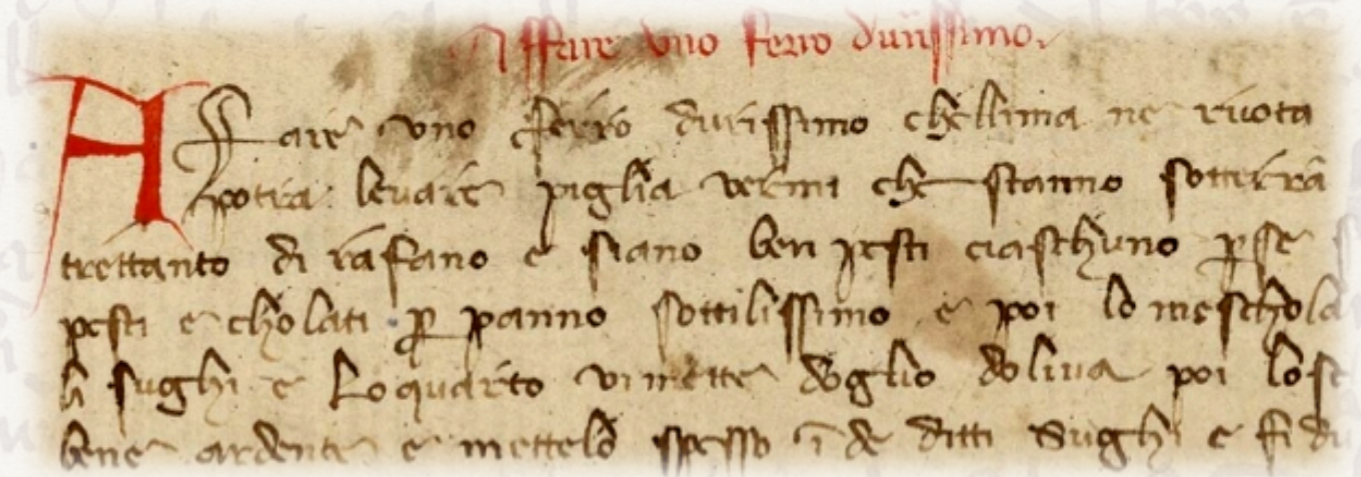 Affare vno ferro durissimo.
Affare vno fferro durissimo chellima ne ruota
potra levare piglia vermi che stanno sotterra
trettanto di rafano e siano ben pesti ciaschuno p se
pesti e cholati p panno sottilissimo e poi lo meschola
li sughi e lo quarto vi mette doglio doliva poi lo
bene ardente e mettelo spesso ī de ditti sughi e